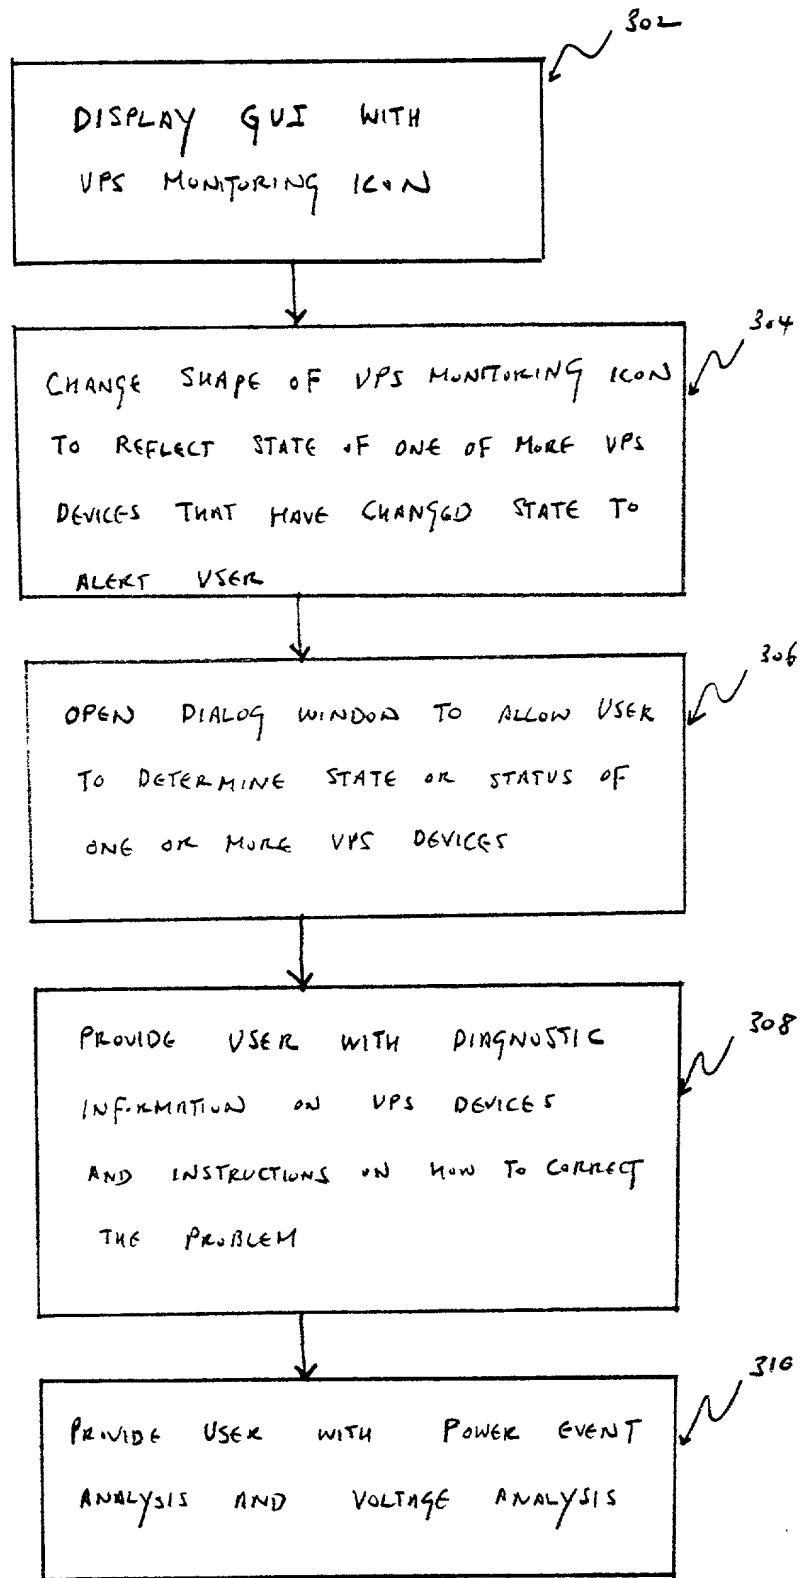 302
DISPLAY GUI WITH
UPS MONITORING ICON
304
CHANGE SHAPE OF UPS MONITORING ICON
TO REFLECT STATE OF ONE OF MORE UPS
DEVICES THAT HAVE CHANGED STATE TO
ALERT USER
306
OPEN DIALOG WINDOW TO ALLOW USER
TO DETERMINE STATE OR STATUS OF
ONE OR MORE UPS DEVICES
308
PROVIDE USER WITH DIAGNOSTIC
INFORMATION ON UPS DEVICES
AND INSTRUCTIONS ON HOW TO CORRECT
THE PROBLEM
310
PROVIDE USER WITH POWER EVENT
ANALYSIS AND VOLTAGE ANALYSIS